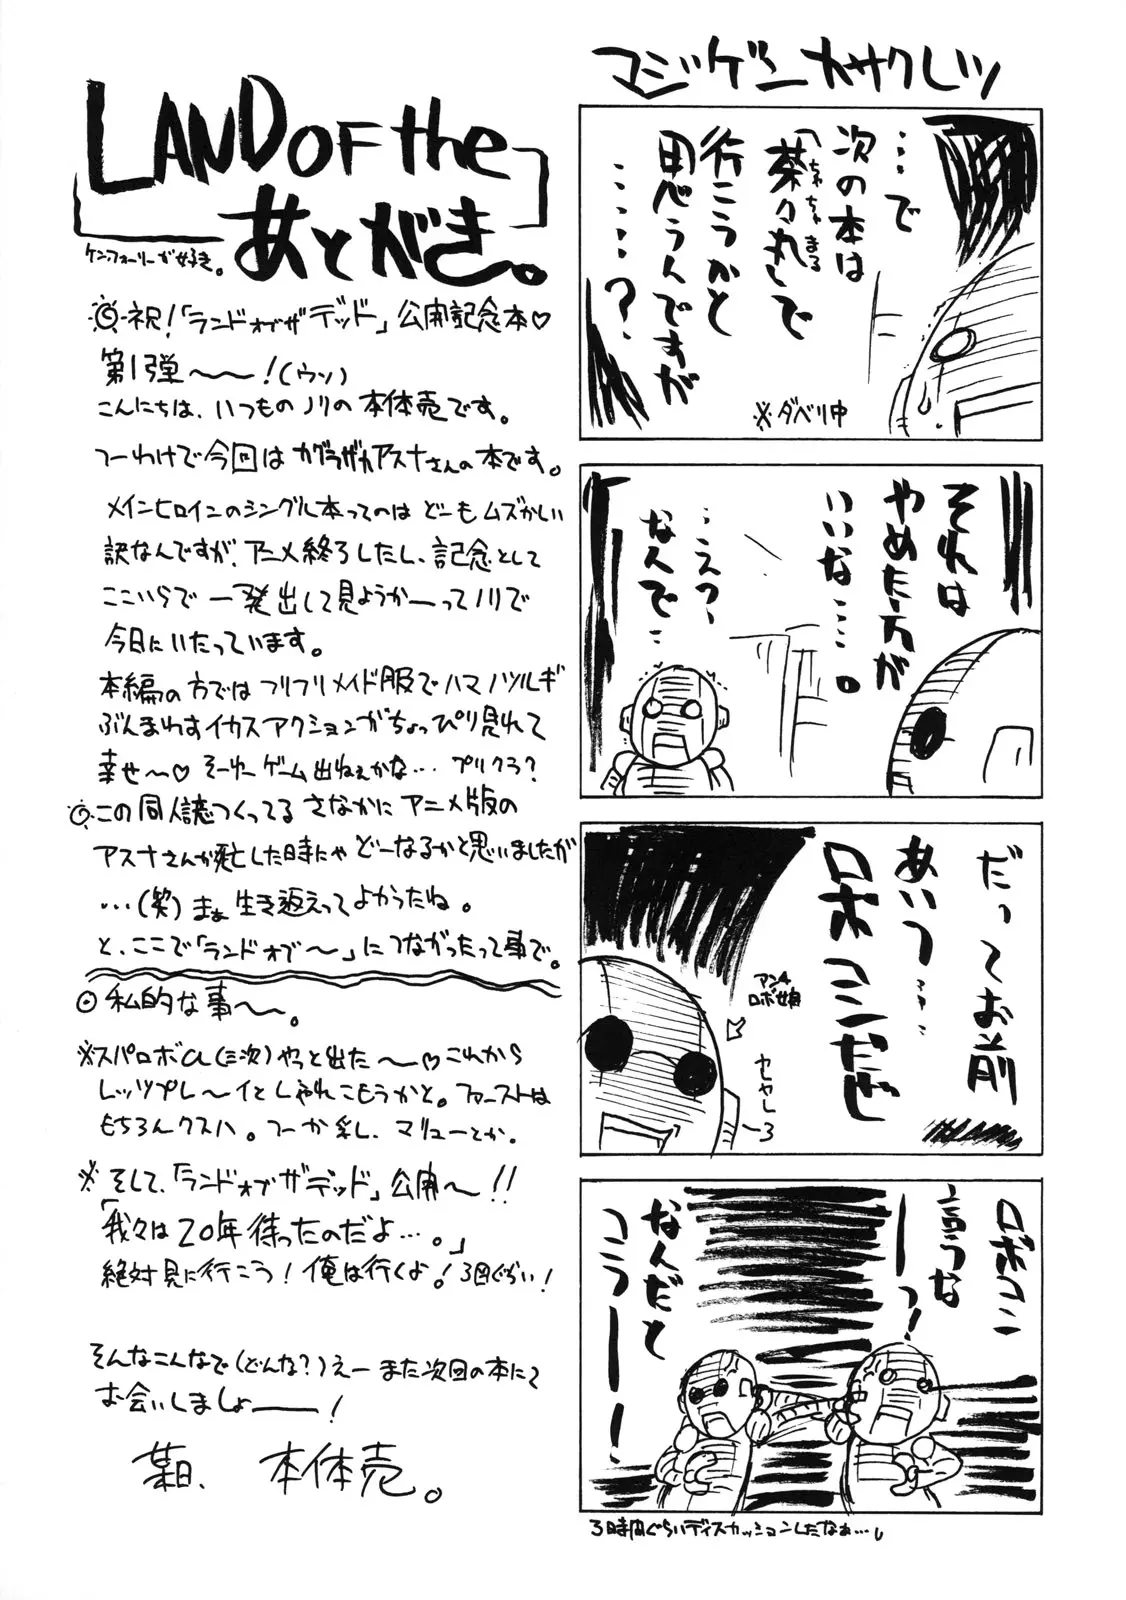 LAND OF the
あとがき。
ケン・フォーリーが好き。
◎祝!「ランドオブザデッド」公開記念本♡
第1弾〜〜!(ウソ)
こんにちは、いつものノリの本体売です。
つーわけで今回はカグラザカアスナさんの本です。
メインヒロインのシングル本ってのはどーもムズかしい
訳なんですが、アニメ終了したし、記念として
ここいらで一発出して見ようかーってノリで
今日にいたっています。
本編の方ではフリフリメイド服でハマノツルギ
ぶんまわすイカスアクションがちょっぴり見れて
幸せ〜♡そーゆーゲーム出ねぇかな…プリクラ?
◎この同人誌つくってるさなかにアニメ版の
アスナさんが死亡した時にゃどーなるかと思いましたが
…(笑)まぁ生き返えってよかったね。
と、ここで「ランドオブ〜」につながったって事で。
◎私的な事〜〜。
※スパロボα(三次)やっと出た〜〜♡これから
レッツプレ〜イとしゃれこもうかと。ファーストは
もちろんクスハ。つーか乳、マリューとか。
※そして、「ランドオブザデッド」公開〜!!
「我々は20年待ったのだよ…。」
絶対見に行こう!俺は行くよ!3回ぐらい!
そんなこんなで(どんな?)えーまた次回の本にて
お会いしましょ――!
某日、 本体売。
マジゲンカサクレツ
…で
次の本は
「茶々丸」で
ちゃちゃまる
行こうかと
思うんですが
……?
※ダベリ中
それは
やめた方が
いいな…。
…えっ、
なんで…
だってお前
あいつ…
ロボコンだぜ
アンチ
ロボ娘
カモヤシ
ーろ
ロボコン
言うな
ーっ!
なんだと
コラーー!
3時間ぐらいディスカッションしたなぁ…。